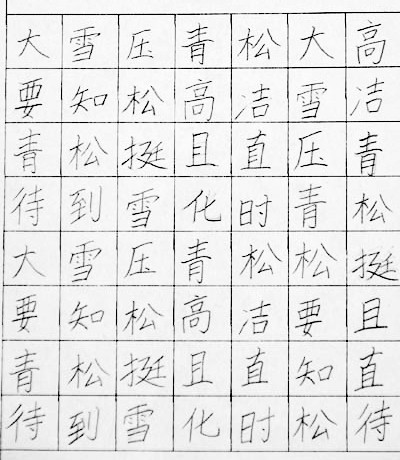 大雪压青松大高
要知松高洁雪洁
青松挺且直压青
待到雪化时青松
大雪压青松松挺
要知松高洁要且
青松挺且直知直
待到雪化时松待